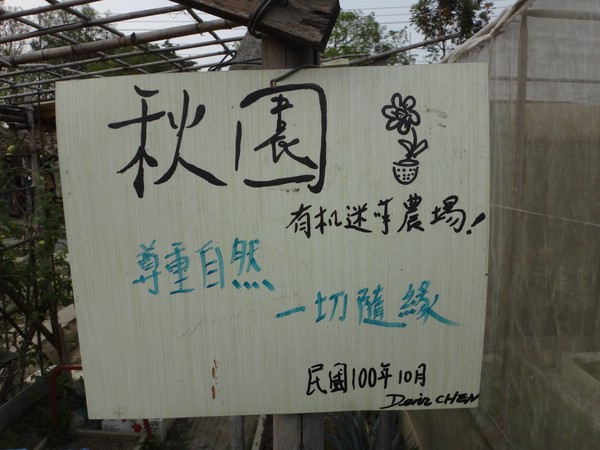 秋園
有机迷你農場!
尊重自然
一切隨緣
民國100年10月
CHEN